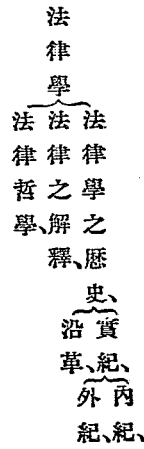 法律學
法律學之厯史、
法律之解釋、
法律哲學、
實紀、
沿革、
内紀、
外紀、